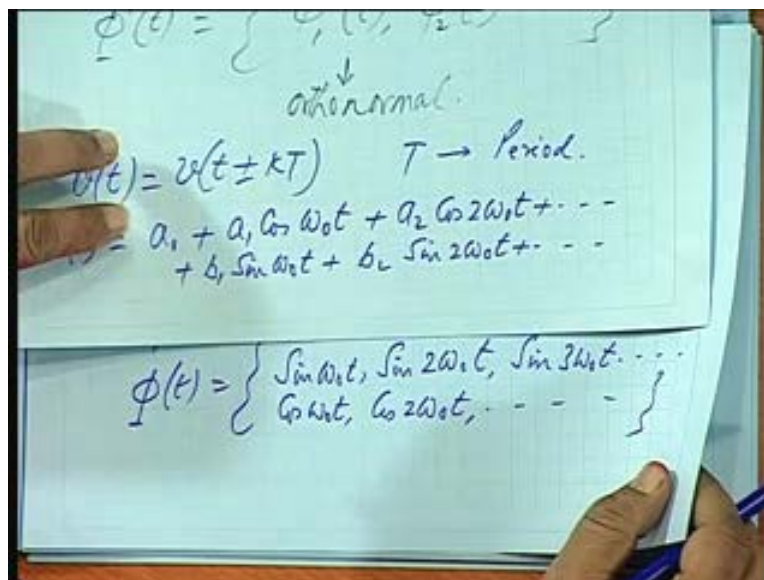 Φ(t) = { φ₁(t), φ₂(t) }
orthonormal.
v(t) = v(t ± KT) T → Period.
= a₀ + a₁ Cos ω₀t + a₂ Cos 2ω₀t + - - -
+ b₁ Sin ω₀t + b₂ Sin 2ω₀t + - - -
Φ(t) = { Sin ω₀t, Sin 2ω₀t, Sin 3ω₀t - - - -
Cos ω₀t, Cos 2ω₀t, - - - - }